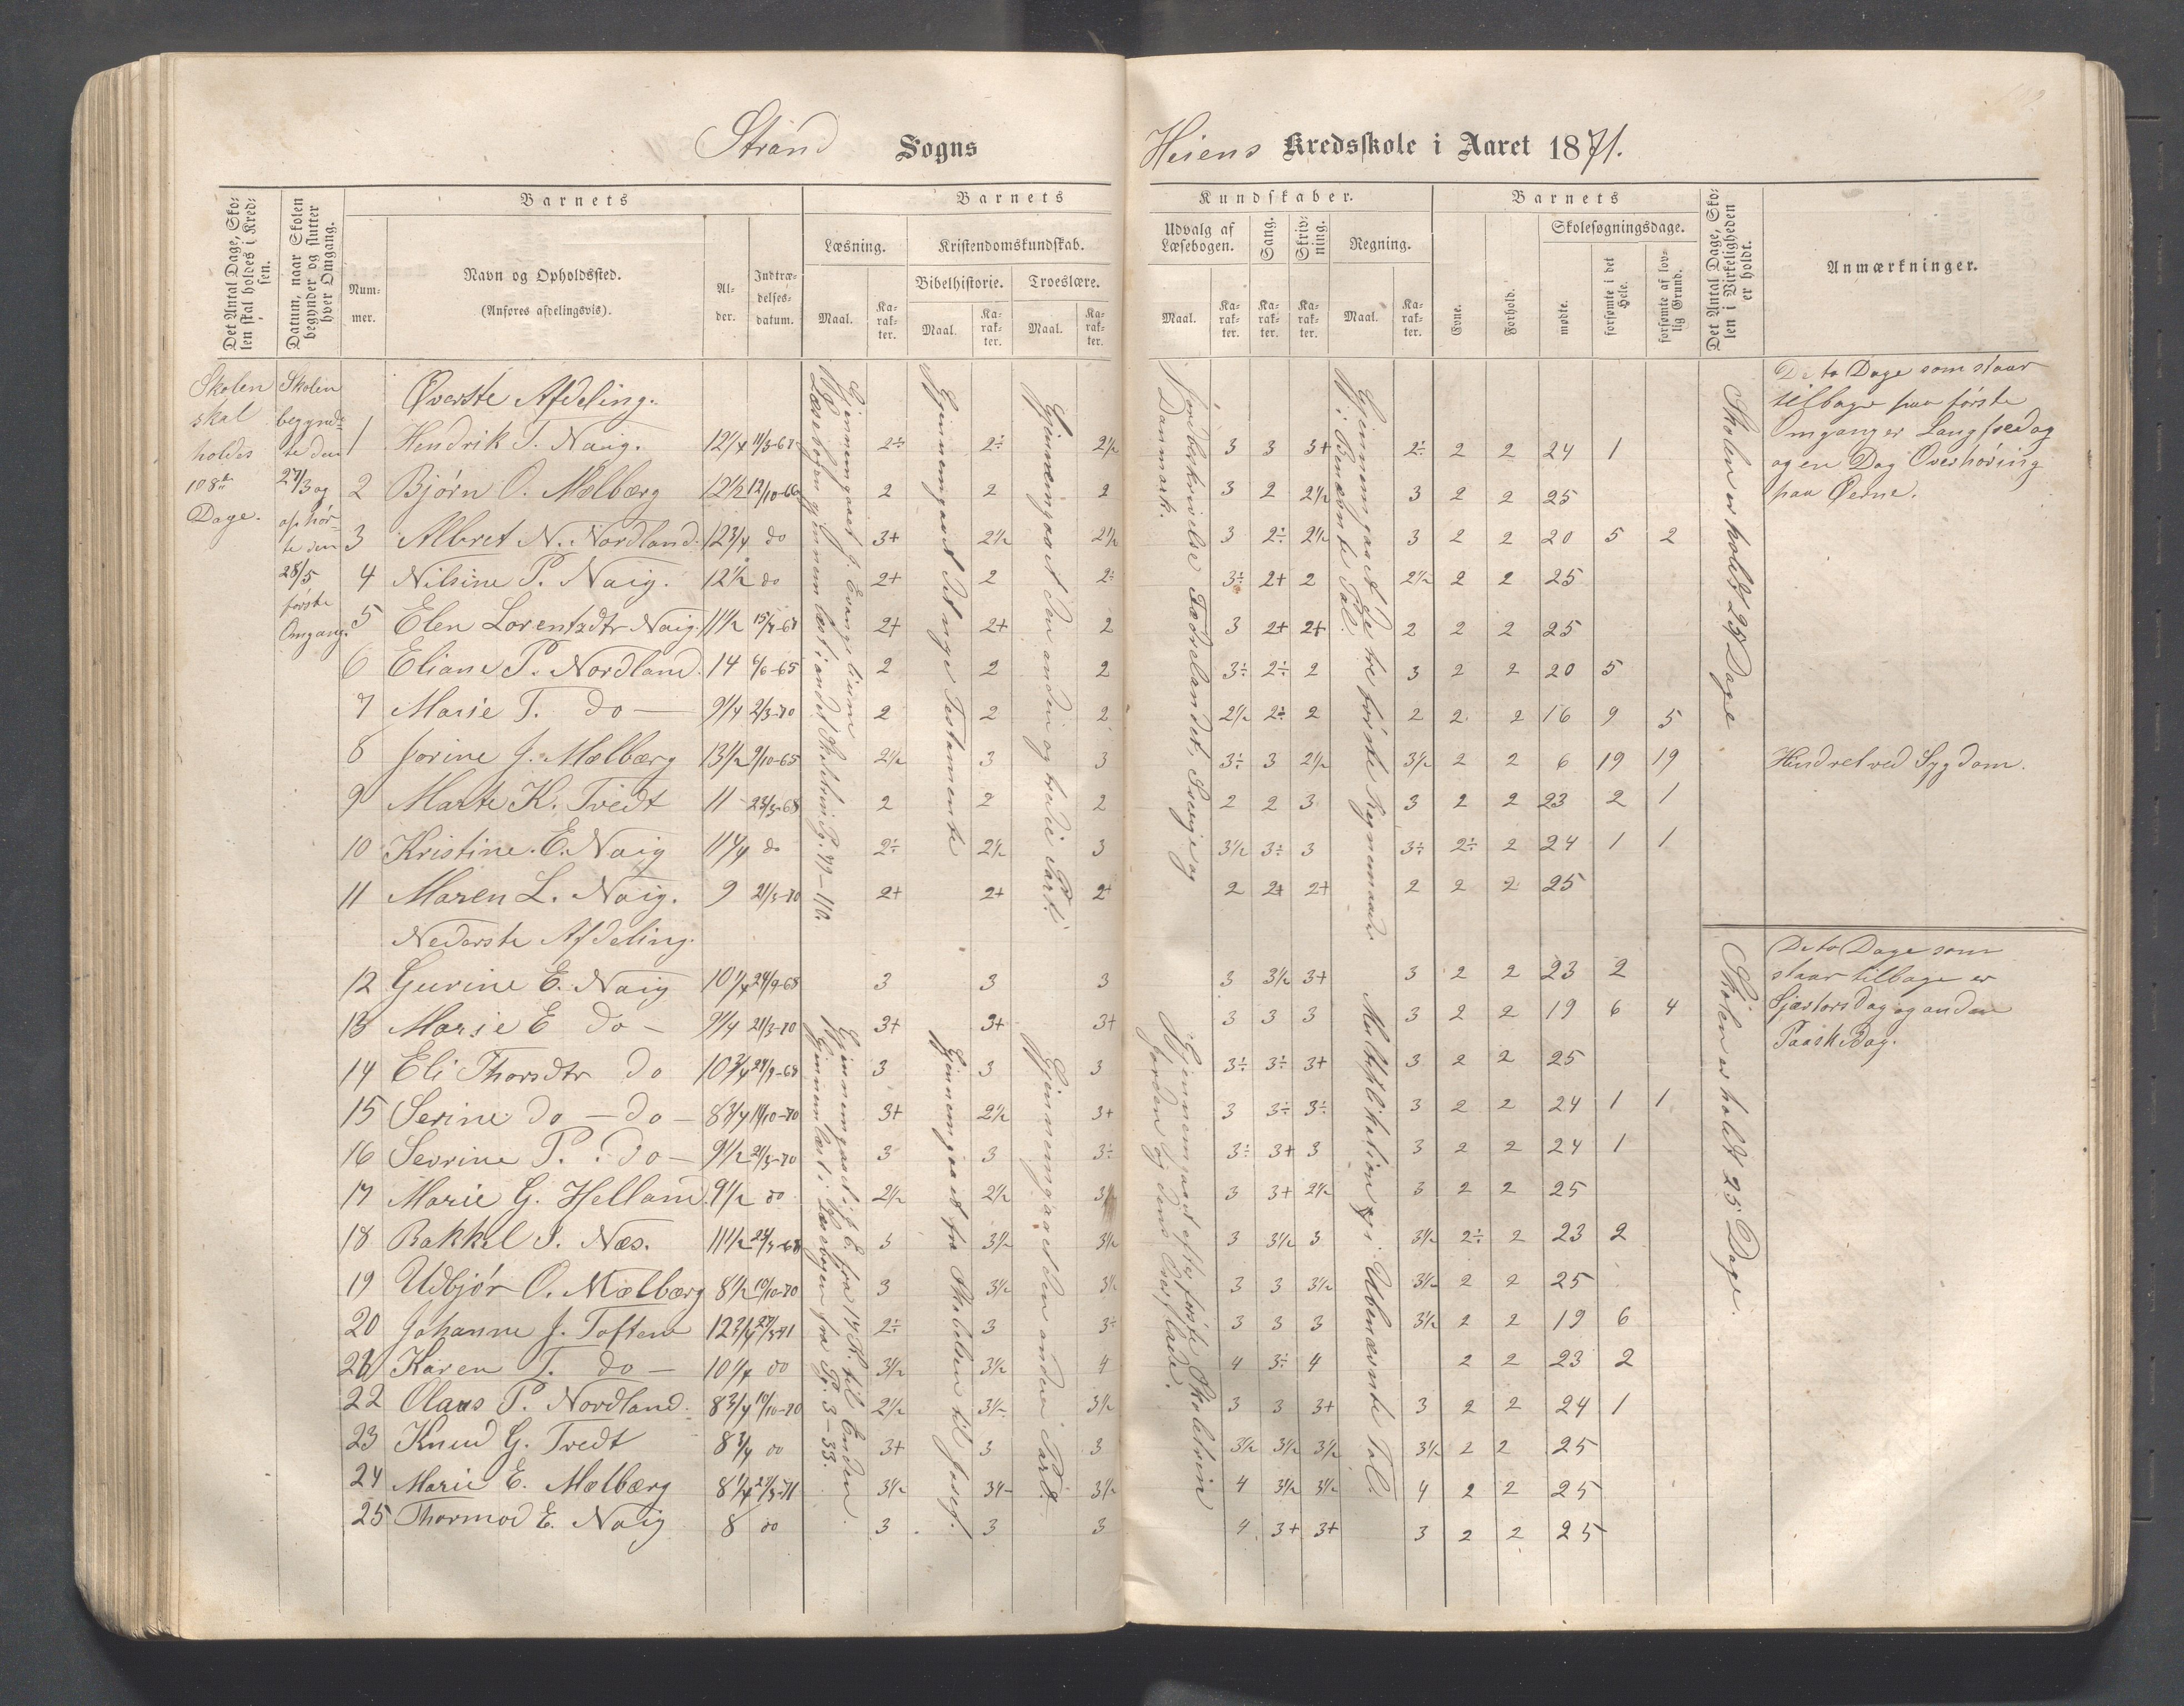 Strand Sogns
Heiens Kredsskole i Aaret 1871.
Det Antal Dage, Sko-
len skal holdes i Kred-
sen.
Datum, naar Skolen
begynder og slutter
hver Omgang.
Barnets
Num-
mer.
Navn og Opholdssted.
(Anføres afdelingsvis).
Al-
der.
Indtræ-
delses-
datum.
Barnets
Læsning.
Maal.
Ka-
rak-
ter.
Kristendomskundskab.
Bibelhistorie.
Maal.
Ka-
rak-
ter.
Troeslære.
Maal.
Ka-
rak-
ter.
Kundskaber.
Udvalg af
Læsebogen.
Maal.
Ka-
rak-
ter.
Sang.
Ka-
rak-
ter.
Skriv-
ning.
Ka-
rak-
ter.
Regning.
Maal.
Ka-
rak-
ter.
Barnets
Evne.
Forhold.
Skolesøgningsdage.
mødte.
forsømte i det
Hele.
forsømte af lov-
lig Grund.
Det Antal Dage, Sko-
len i Virkeligheden
er holdt.
Anmærkninger.
Skolen
skal
holdes
108
Dage.
Skolen
begynd-
te den
27/3 og
ophør-
te den
28/5
første
Omgang.
Øverste Afdeling.
1 Hendrik T. Naig. 12 1/4 2÷ 2÷ 2 1/2 3 3 3+ 2÷ 2 2 24 1
2 Bjørn O. Mælbærg 12 1/2 12/10-66 2 2 2 3 2 2 1/2 3 2 2 25
3 Albret N. Nordland. 12 3/4 do 3+ 2 1/2 2 1/2 3 2÷ 2 1/2 3 2 2 20 5 2
4 Nilsine P. Naig. 12 1/2 do 2+ 2 2÷ 3÷ 2+ 2 2 1/2 2 2 25
5 Elen Lorentzdtr Naig. 11 1/2 2+ 2+ 2 3 2+ 2+ 2 2 2 25
6 Eliane P. Nordland. 14 2 2 2 3÷ 2÷ 2 3 2 2 20 5
7 Marie T. do — 9 1/4 2/3-70 2 2 2 2 1/2 2÷ 2 2 2 2 16 9 5
8 Jorine J. Mælbærg 13 1/2 9/10-65 2 1/2 3 3 3÷ 3 2 1/2 3 1/2 2 2 6 19 19
9 Marte K. Tvedt 11 23/3-68 2 2 2 2 2 3 3 2 2 23 2 1
10 Kristine E. Naig 11 1/4 do 2÷ 2 1/2 3 3 1/2 3÷ 3 3÷ 2÷ 2 24 1 1
11 Maren L. Naig. 9 21/3-70 2+ 2+ 2+ 2 2+ 2+ 2 2 2 25
Nederste Afdeling.
12 Gurine E. Naig 10 1/4 24/9-68 3 3 3 3 3 1/2 3+ 3 2 2 23 2
13 Marie E do — 9 1/4 21/3-70 3+ 3+ 3+ 3 3 3 3 2 2 19 6 4
14 Eli Thorsdtr do 10 3/4 24/9-68 3 3 3 3÷ 3÷ 3+ 3 2 2 25
15 Serine do — do — 8 3/4 3+ 2 1/2 3+ 3 3÷ 3÷ 3 2 2 24 1 1
16 Sevrine P. do — 9 1/2 21/3-70 3 3 3÷ 3÷ 3+ 3 3 2 2 24 1
17 Marie G. Helland. 9 1/2 do 2 1/2 2 1/2 3 3+ 2 1/2 3 2 2 25
18 Rakkel S. Næs. 11 1/2 3 3 1/2 3 1/2 3 3 1/2 3 3 1/2 2÷ 2 23 2
19 Udbjør O. Mælbærg 8 1/2 10/10-70 3 3 1/2 3 1/2 3 3 3 1/2 3 1/2 2 2 25
20 Johanne J. Toften 12 3/4 2÷ 3 3÷ 3 3 3 3 1/2 2 2 19 6
21 Karen T. do — do 3 1/2 3 1/2 4 4 3÷ 4 2 2 23 2
22 Olaus P. Nordland. 8 3/4 10/10-70 2 1/2 3 1/2 3 1/2 3 3 3+ 3 2 2 24 1
23 Knud G. Tvedt 8 3/4 do 3+ 3 3 3 1/2 3 1/2 3 1/2 3 1/2 2 2 25
24 Marie E. Mælbærg 8 1/4 3 1/2 3 1/2 4 3 1/2 3 1/2 4 2 2 25
25 Thormod E. Naig 8 do 3 3 3 4 3+ 3+ 3 2 2 25
Gjennemgaaet J. Evangelium
Læsebogen gjennemlæst i andet Skoletrin Pg. 49—110.
Gjennemgaaet det nye Testamente
Gjennemgaaet den anden og tredie Part.
Jordbeskrivelse Fædrelandet, Sverige og
Danmark.
Gjennemgaaet de tre første Regnemaader
i Benævnte Tal.
Skolen er holdt 25 Dage
De to Dage som staar
tilbage paa første
mgang er Langfredag
og en Dag Overhøring
paa Øerne.
Hindret ved Sygdom.
Gjennemlæst i Læsebogen fra Pg. 3—33.
Gjennemgaaet fra Skabelsen til Josef.
Gjennemgaaet den anden Part.
Gjennemgaaet efter første Skoletrin
Jorden og dens Overflade.
Multiplikation i Ubenævnte Tal.
Skolen er holdt 25 Dage.
De to Dage som
staar tilbage er
Sjærtorsdag og anden
Paaskedag.